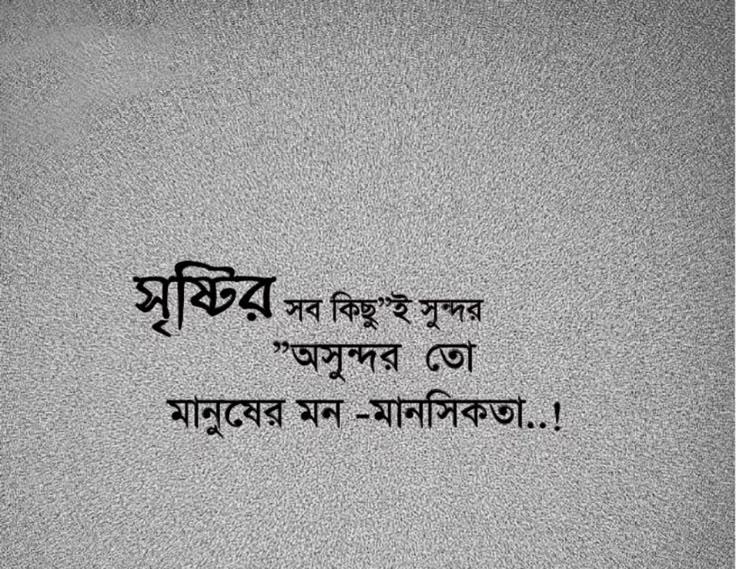 সৃষ্টির সব কিছু”ই সুন্দর
”অসুন্দর তো
মানুষের মন -মানসিকতা..!